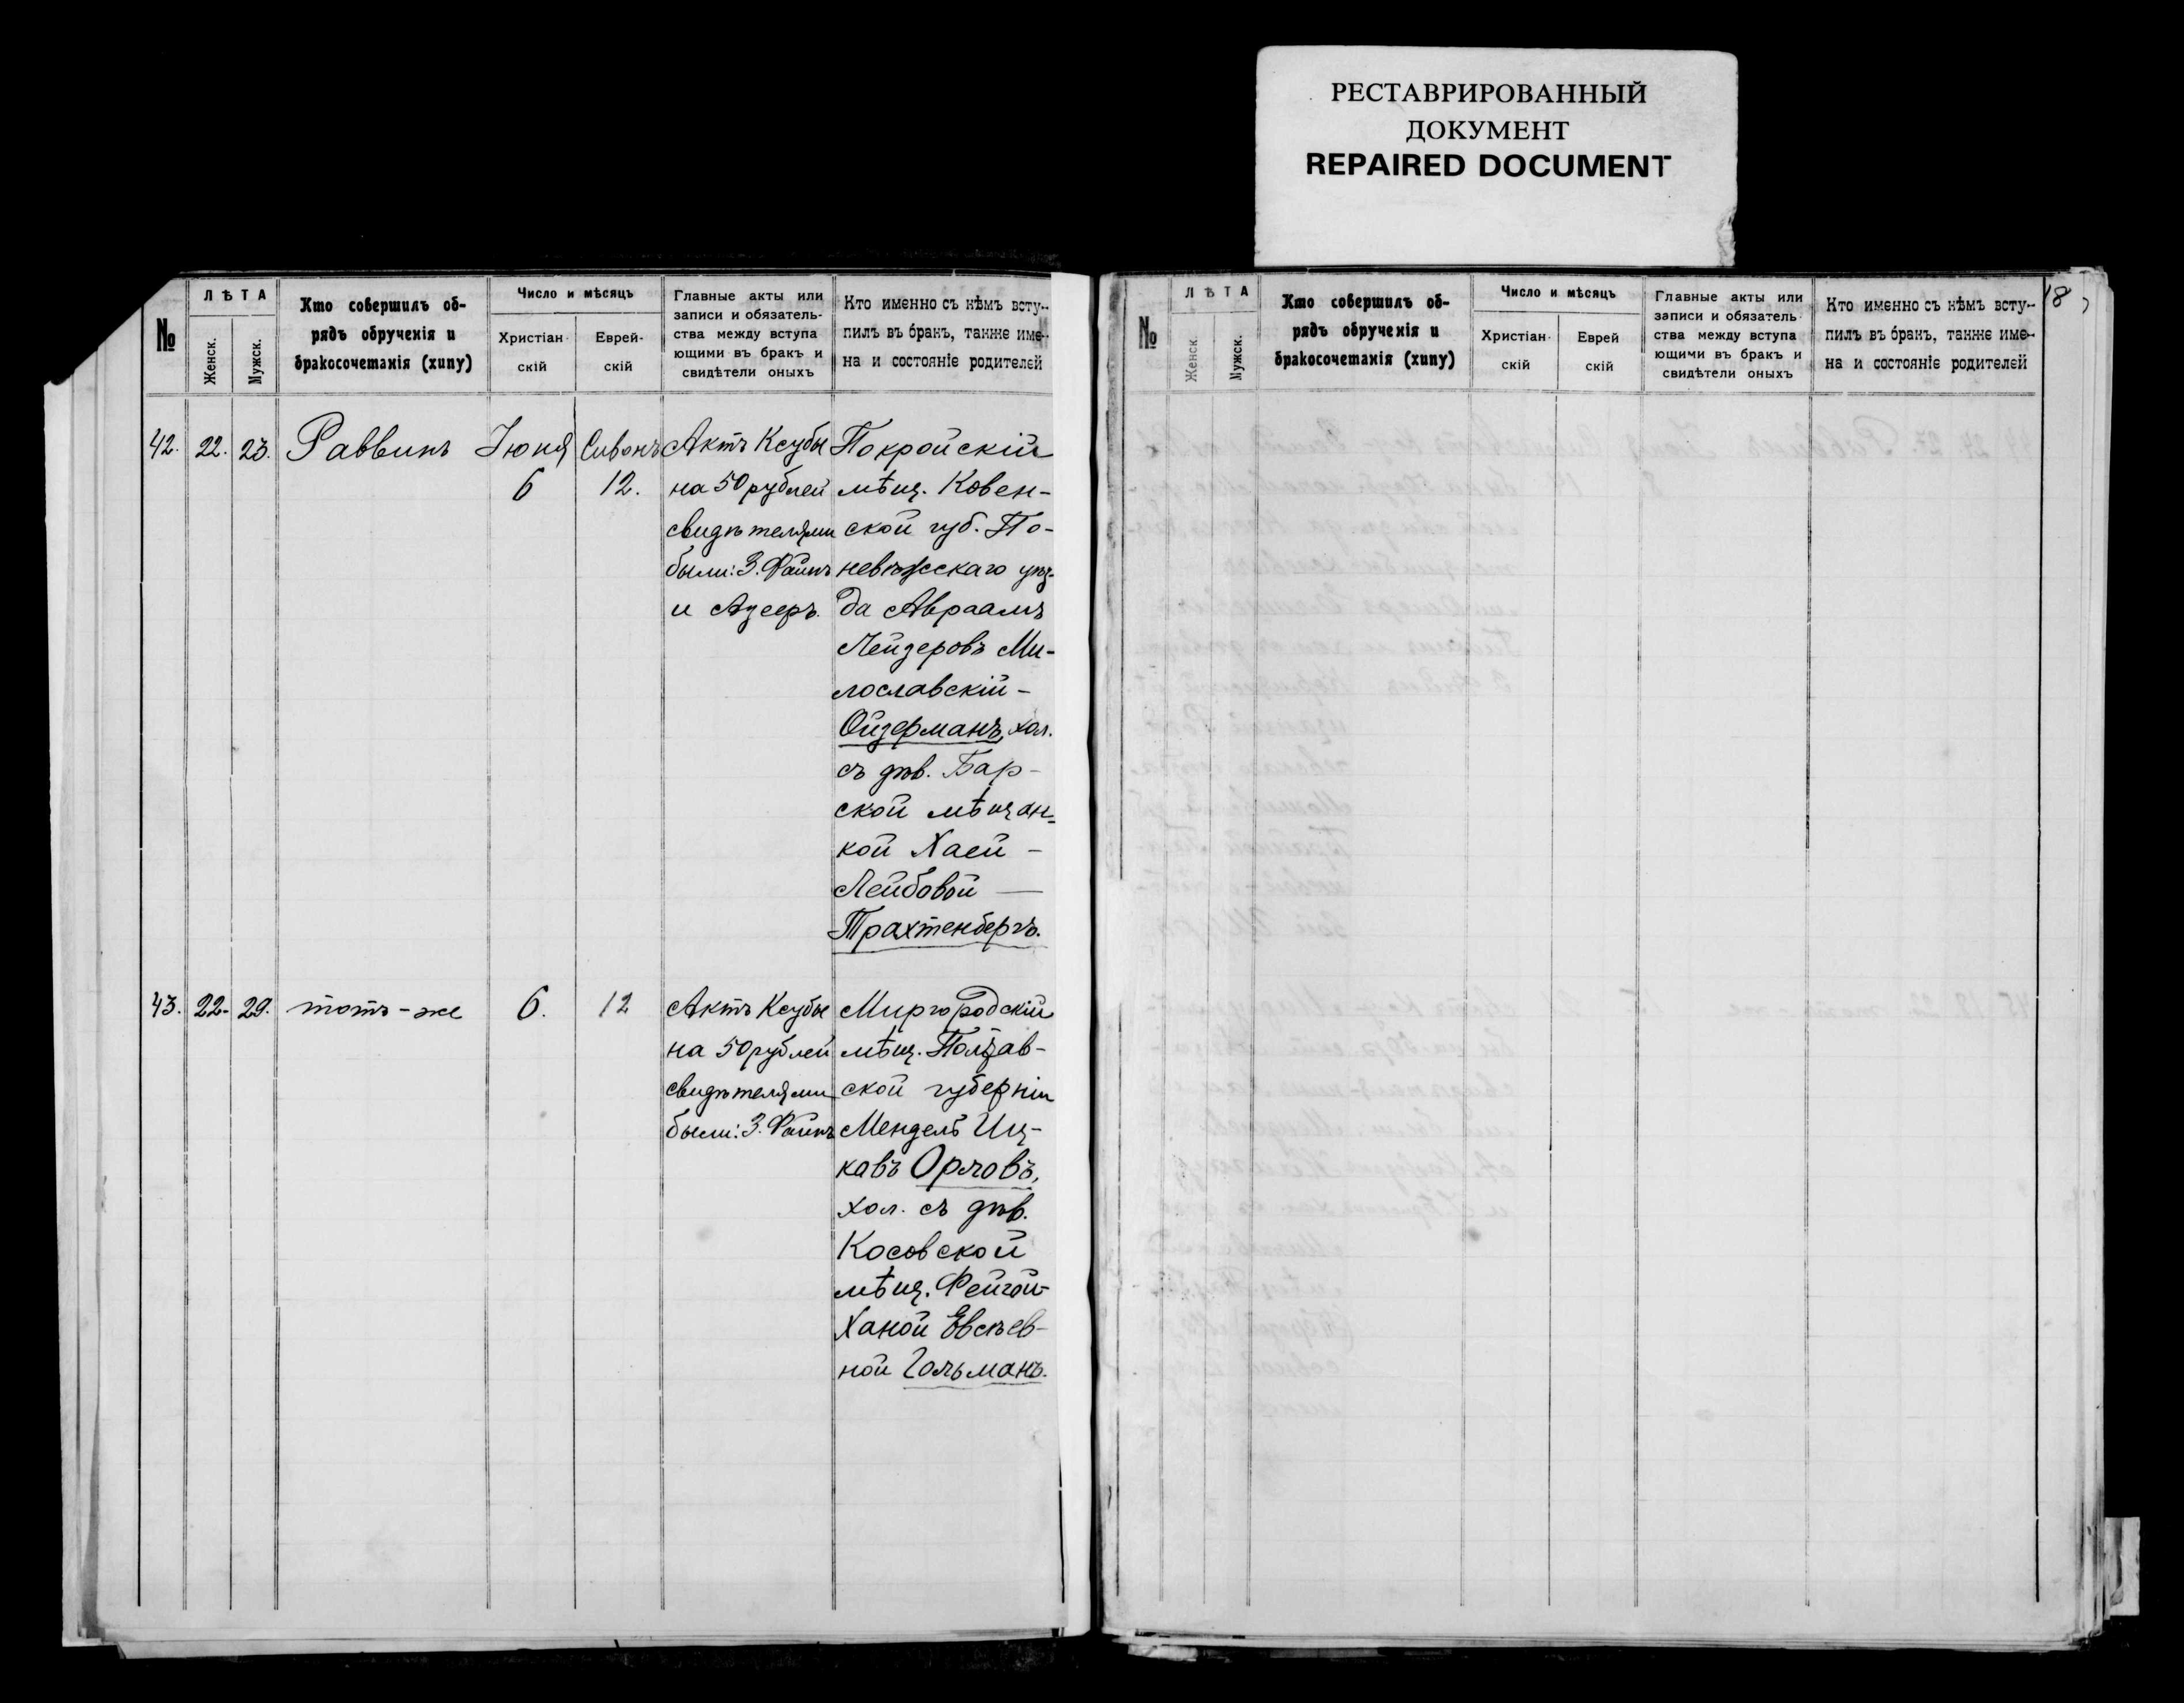 РЕСТАВРИРОВАННЫЙ
ДОКУМЕНТ
REPAIRED DOCUMENT
№
ЛѢТА
Женск.
Мужск.
Кто совершилъ об-
рядъ обрученія и
бракосочетанія (хипу)
Число и мѣсяцъ
Христіан-
скій
Еврей-
скій
Главные акты или
записи и обязатель-
ства между вступа
ющими въ бракъ и
свидѣтели оныхъ
Кто именно съ нѣмъ всту-
пилъ въ бракъ, также име-
на и состояніе родителей
42.
22.
23.
Раввинъ
Іюня
6
Сивонъ
12.
Актъ Ксубы
на 50 рублей
свидѣтелями
были: З. Файнъ
и Азееръ.
Покройскій
мѣщ. Ковен-
ской губ. По-
невѣжскаго уѣз-
да Авраамъ
Лейзеровъ Ми-
лославскій -
Ойзерманъ, хол.
съ дѣв. Бар-
ской мѣщан-
кой Хаей -
Лейбовой —
Трахтенбергъ.
43.
22.
29.
тотъ-же
6.
12
Актъ Ксубы
на 50 рублей
свидѣтелями
были: З. Файнъ
Миргородскій
мѣщ. Полтав-
ской губерніи
Мендель Иц-
ковъ Орловъ,
хол. съ дѣв.
Косовской
мѣщ. Фейгой-
Ханой Евсѣев-
ной Гольманъ.
№
ЛѢТА
Женск.
Мужск.
Кто совершилъ об-
рядъ обрученія и
бракосочетанія (хипу)
Число и мѣсяцъ
Христіан-
скій
Еврей
скій
Главные акты или
записи и обязатель-
ства между вступа
ющими въ бракъ и
свидѣтели оныхъ
Кто именно съ нѣмъ всту-
пилъ въ бракъ, также име-
на и состояніе родителей
18